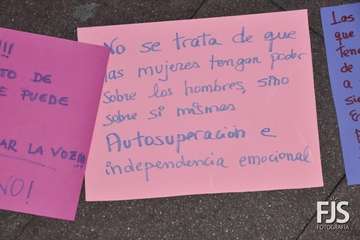 !!!
TO DE
E PUEDE
AR LA VOZ!!!
NO!
No se trata de que
las mujeres tengan poder
sobre los hombres, sino
sobre si mismas
Autosuperación e
independencia emocional
Las
que
tene
de
a
si
FJS
FOTOGRAFÍA